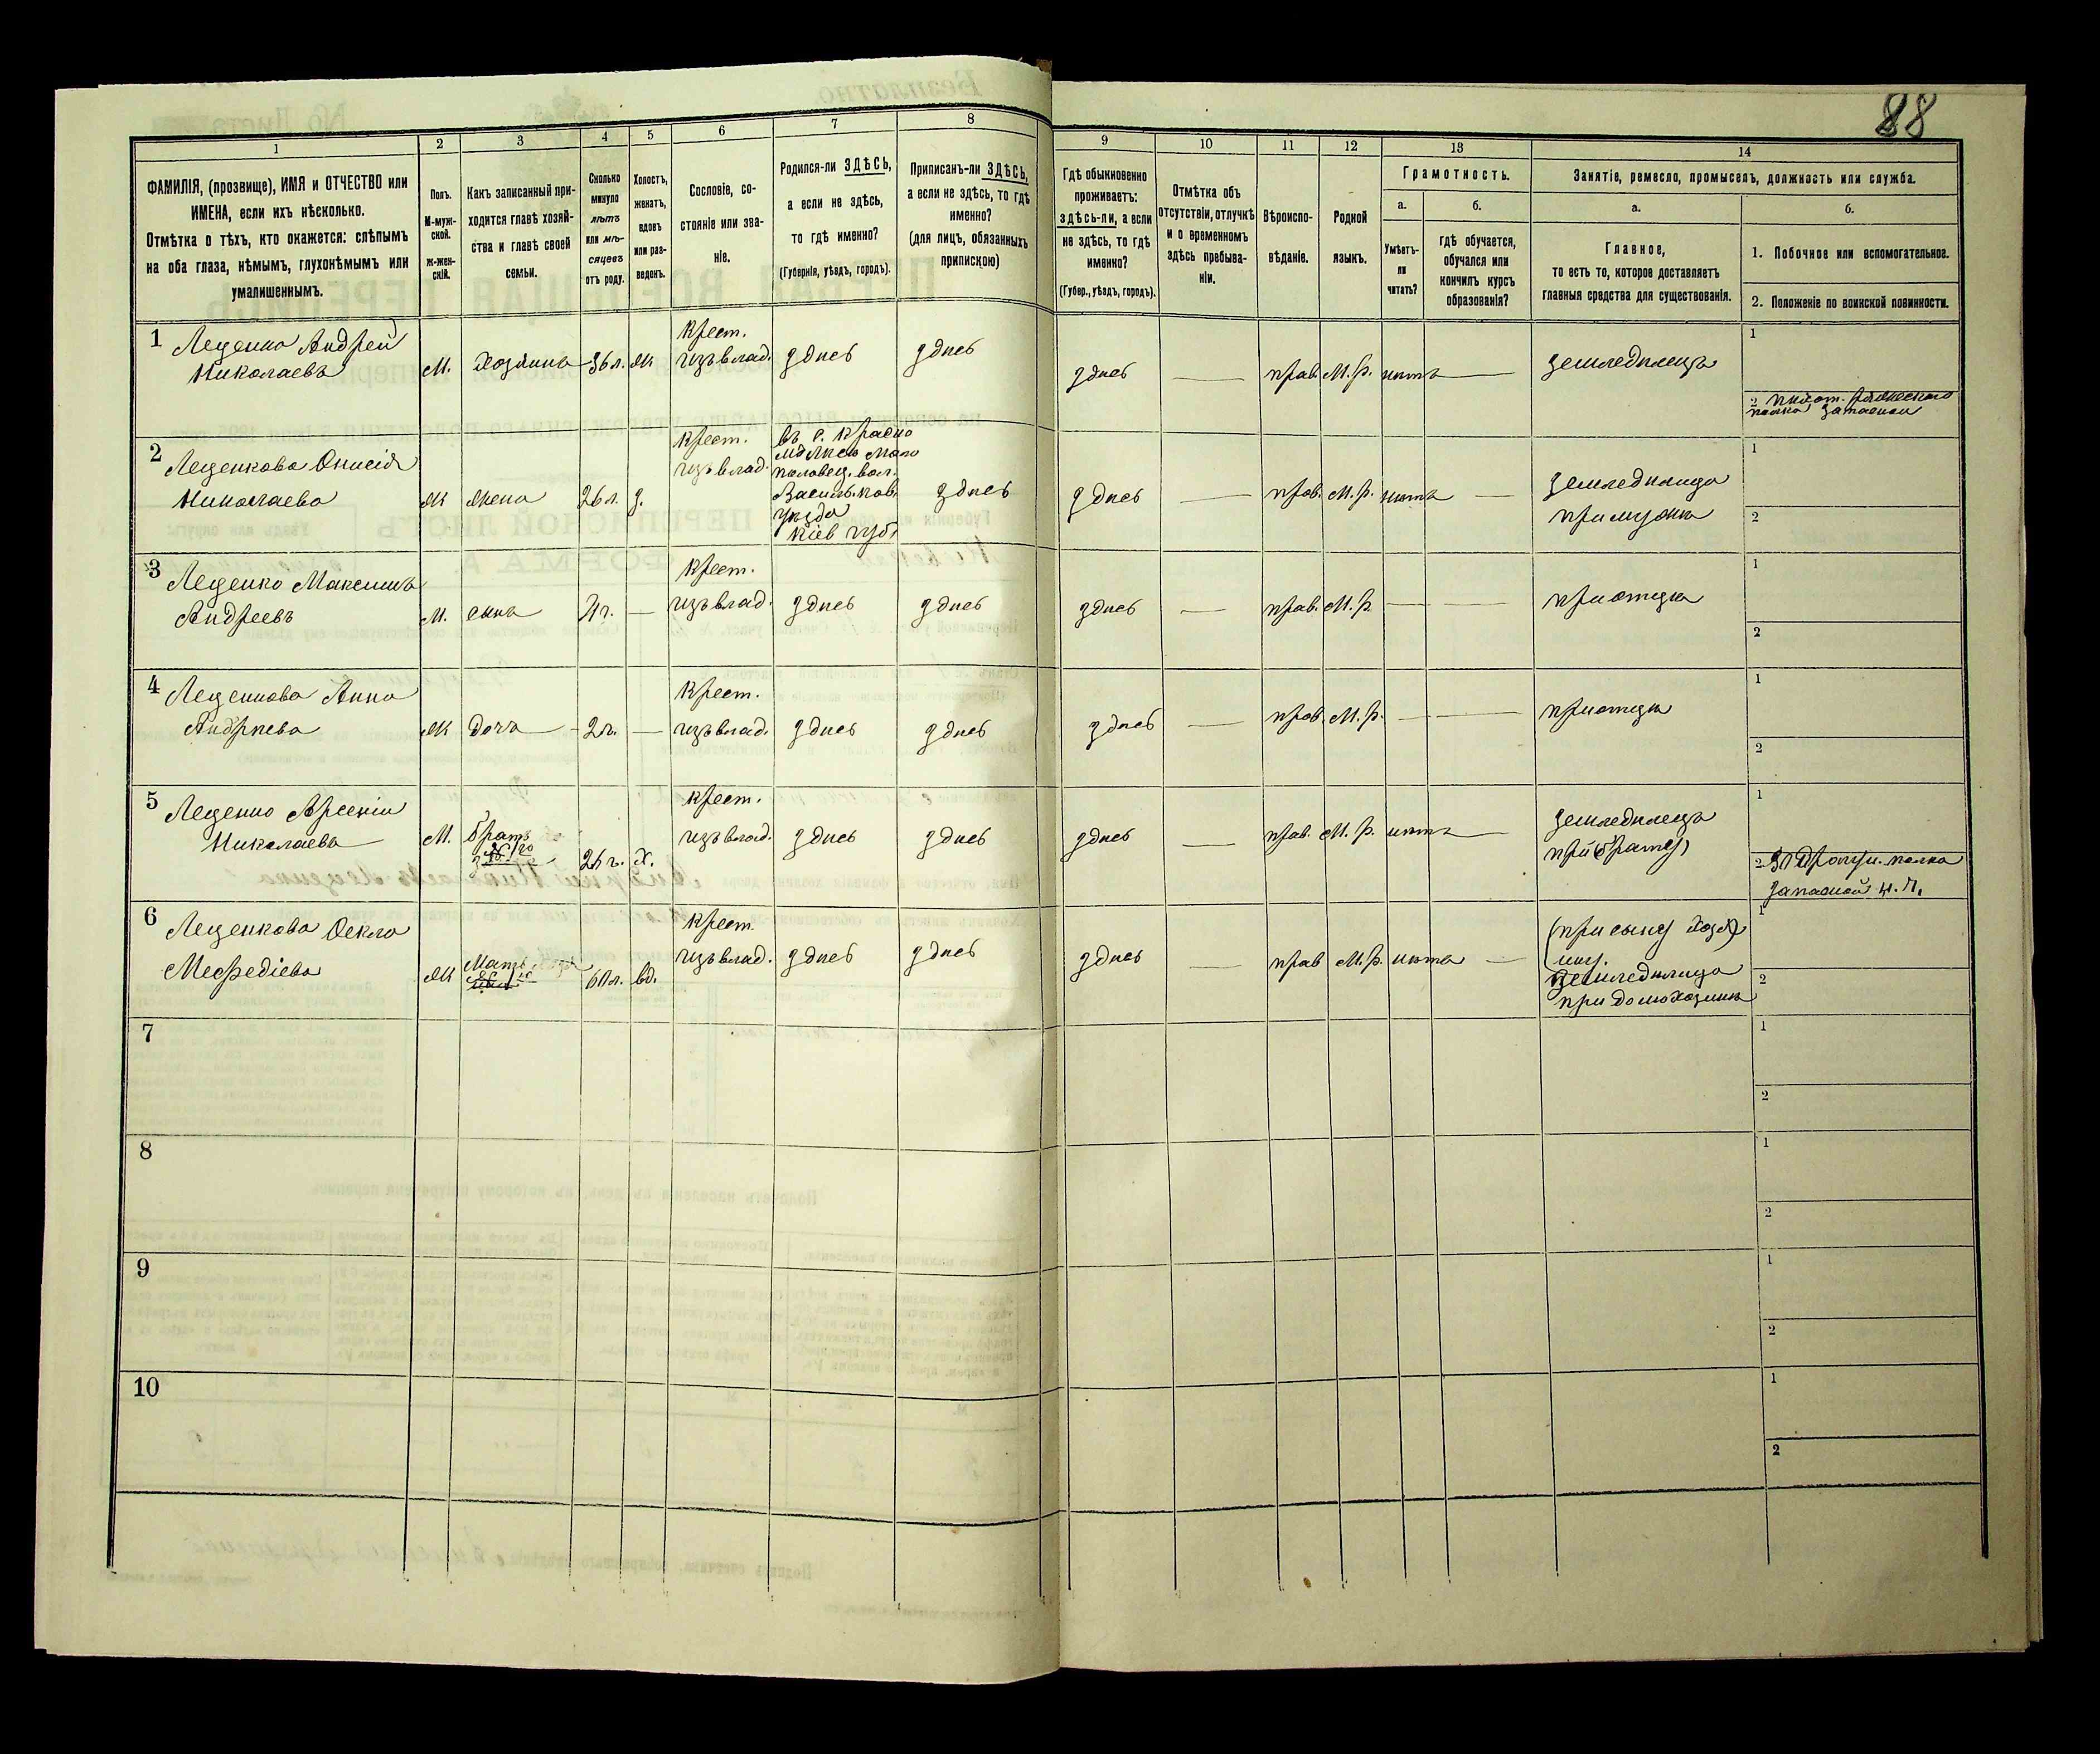 88
1
2
3
4
5
6
7
8
9
10
11
12
13
14
ФАМИЛІЯ, (прозвище), ИМЯ и ОТЧЕСТВО или
ИМЕНА, если ихъ нѣсколько.
Отмѣтка о тѣхъ, кто окажется: слѣпымъ
на оба глаза, нѣмымъ, глухонѣмымъ или
умалишеннымъ.
Полъ.
М-муж-
ской.
Ж-жен-
скій.
Какъ записанный при-
ходится главѣ хозяй-
ства и главѣ своей
семьи.
Сколько
минуло
лѣтъ
или мѣ-
сяцевъ
отъ роду.
Холостъ,
женатъ,
вдовъ
или раз-
веденъ.
Сословіе, со-
стояніе или зва-
ніе.
Родился-ли ЗДѢСЬ,
а если не здѣсь,
то гдѣ именно?
(Губернія, уѣздъ, городъ).
Приписанъ-ли ЗДѢСЬ,
а если не здѣсь, то гдѣ
именно?
(для лицъ, обязанныхъ
припискою)
Гдѣ обыкновенно
проживаетъ:
здѣсь-ли, а если
не здѣсь, то гдѣ
именно?
(Губер., уѣздъ, городъ).
Отмѣтка объ
отсутствіи, отлучкѣ
и о временномъ
здѣсь пребыва-
ніи.
Вѣроиспо-
вѣданіе.
Родной
языкъ.
Грамотность.
а.
Умѣетъ-
ли
читать?
б.
гдѣ обучается,
обучался или
кончилъ курсъ
образованія?
Занятіе, ремесло, промыселъ, должность или служба.
а.
Главное,
то есть то, которое доставляетъ
главныя средства для существованія.
б.
1. Побочное или вспомогательное.
2. Положеніе по воинской повинности.
1
Леценко Андрей
Николаевъ
М. Хозяинъ 36 л. Ж
Крест.
изъ влад.
здѣсь
здѣсь
здѣсь — прав. М. р. нѣтъ —
земледѣлецъ
1
2
полка запасной
2
Леценкова Онисія
Николаева
Ж жена 26 л. З.
Крест.
изъ влад.
въ с. Красно
вол.
Васильков.
уѣзда
Кіев губ.
здѣсь
здѣсь — прав. М. р. нѣтъ —
земледѣлица
при мужѣ
1
2
3
Леценко Максимъ
Андреевъ
М. сынъ 4 г. —
Крест.
изъ влад.
здѣсь
здѣсь
здѣсь — прав. М. р. — —
при отцѣ
1
2
4
Леценкова Анна
Андреева
Ж дочь 2 г. —
Крест.
изъ влад.
здѣсь
здѣсь
здѣсь — прав. М. р. — —
при отцѣ
1
2
5
Леценко Арсеній
Николаевъ
М. братъ
Х.
Крест.
изъ влад.
здѣсь
здѣсь
здѣсь — прав. М. р. нѣтъ —
земледѣлецъ
при брату
1
2 драгун. полка
запасной
6
Леценкова Фекла
Мефедіева
Ж Мать
60 л. вд.
Крест.
изъ влад.
здѣсь
здѣсь
здѣсь — прав М. р. нѣтъ —
(при сыну хозя)
ину.
земледѣлица
при домохозяинѣ
1
2
7
1
2
8
1
2
9
1
2
10
1
2